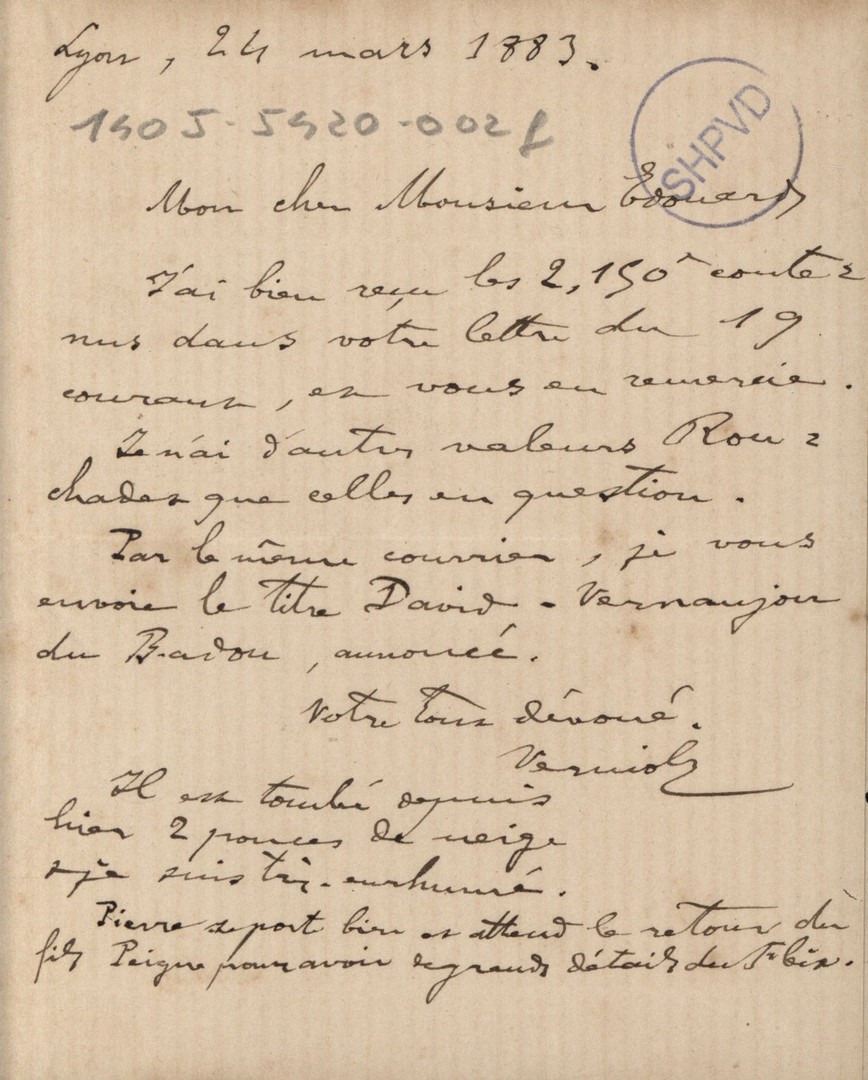 Lyon, 24 mars 1883.
1405-5420-002f
SHPVD
Mon cher Monsieur Edouard
J'ai bien reçu les 2,150 f conte=
nus dans votre lettre du 19
courant, et vous en remercie.
Je n'ai d'autres valeurs Rou=
chades que celles en question.
Par le même courrier, je vous
envoie le titre David-Vernaujou
du Badou, annoncé.
Votre tout dévoué.
Verniolz
Il est tombé depuis
hier 2 pouces de neige
& je suis très-enrhumé.
Pierre se porte bien et attend le retour du
fils Peigne pour avoir de grands détails du